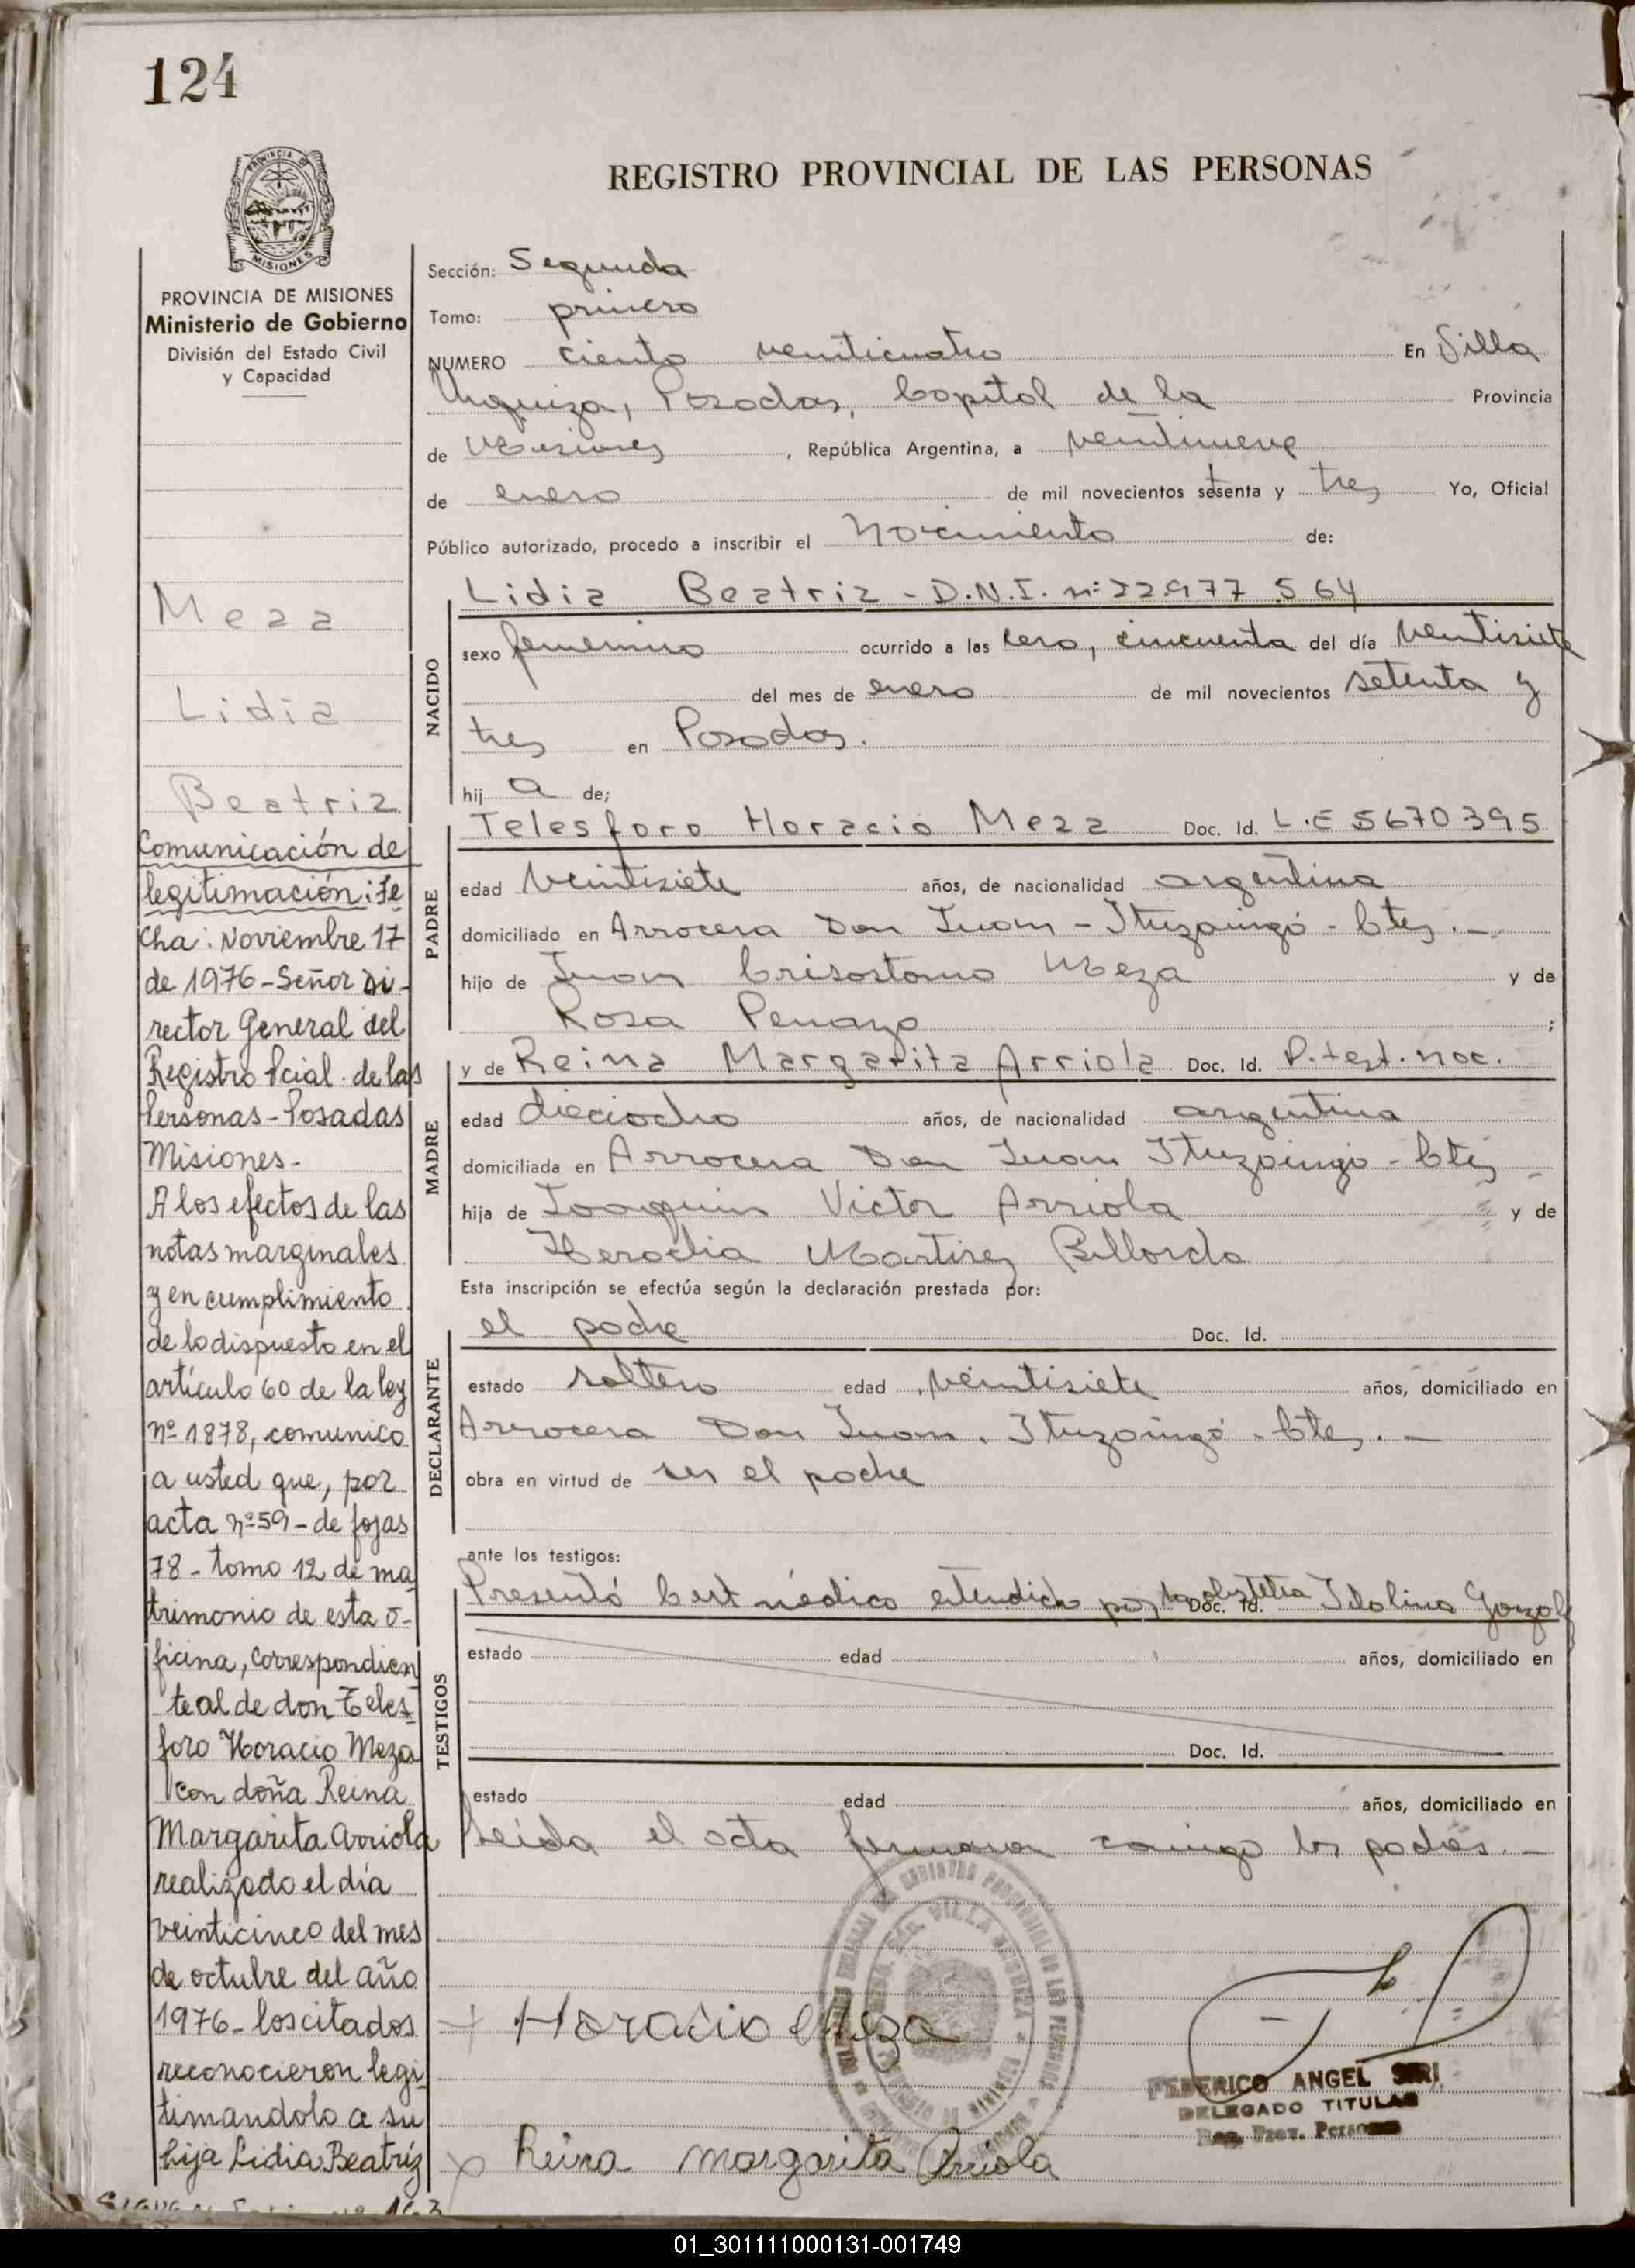 124
REGISTRO PROVINCIAL DE LAS PERSONAS
PROVINCIA DE MISIONES
Ministerio de Gobierno
División del Estado Civil
y Capacidad
Meza
Lidia
Beatriz
Comunicación de
legitimación: Fe
cha: Noviembre 17
de 1976 - Señor Di-
rector General del
Registro Pcial. de las
Personas - Posadas
Misiones -
A los efectos de las
notas marginales
y en cumplimiento
de lo dispuesto en el
artículo 60 de la ley
nº 1878, comunico
a usted que, por
acta nº 59 - de fojas
78 - tomo 12 de ma
trimonio de esta o-
ficina, correspondien
te al de don Teles-
foro Horacio Meza
con doña Reina
Margarita Arriola
realizado el día
veinticinco del mes
de octubre del año
1976 - los citados
reconocieron legi
timandolo a su
hija Lidia Beatríz
Sección: Segunda
Tomo: primero
NUMERO ciento veinticuatro En Villa
Urquiza, Posadas, Capital de la Provincia
de Misiones, República Argentina, a veintinueve
de enero de mil novecientos setenta y tres Yo, Oficial
Público autorizado, procedo a inscribir el nacimiento de:
NACIDO
Lidia Beatriz - D.N.I. nº 22.977.564
sexo femenino ocurrido a las cero, cincuenta del día veintisiete
del mes de enero de mil novecientos setenta y
tres en Posadas.
hij a de;
PADRE
Telesforo Horacio Meza Doc. Id. L.E 5670395
edad veintisiete años, de nacionalidad argentina
domiciliado en Arrocera Don Juan - Ituzaingó - Ctes. -
hijo de Juan Crisostomo Meza y de
Rosa Penayo ;
MADRE
y de Reina Margarita Arriola Doc. Id. P. test. nac.
edad dieciocho años, de nacionalidad argentina
domiciliada en Arrocera Don Juan Ituzaingó - Ctes -
hija de Joaquin Victor Arriola y de
Martirez Billordo
Esta inscripción se efectúa según la declaración prestada por:
DECLARANTE
el padre Doc. Id.
estado soltero edad veintisiete años, domiciliado en
Arrocera Don Juan. Ituzaingó - Ctes. -
obra en virtud de ser el padre
ante los testigos:
TESTIGOS
Presentó Cert médico extendido por la obstetra Idolina Doc. Id.
estado edad años, domiciliado en
Doc. Id.
estado edad años, domiciliado en
Leida el acta firman conmigo los padres. -
Horacio Meza
FEDERICO ANGEL SIRI
DELEGADO TITULAR
Reg. Prov. Personas
Reina Margarita Arriola
01_301111000131-001749